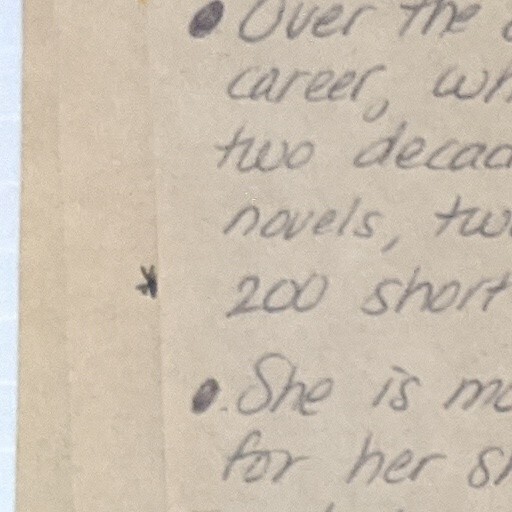 • Over the
career, wh
two decad
novels, tw
* 200 short
• She is mo
for her sh